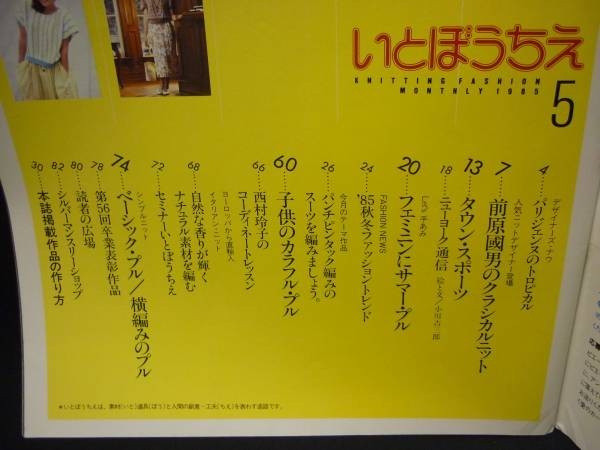 いとぼうちえ
KNITTING FASHION
MONTHLY 1985
5
デザイナーズ・ナウ
4 パリジェンヌのトロピカル
人気ニットデザイナー登場
7 前原國男のクラシカルニット
13 タウン・スポーツ
18 ニューヨーク通信 絵と文/小川吉三郎
20 フェミニンにサマー・プル
FASHION NEWS
24 '85秋冬ファッショントレンド
今月のテーマ作品
26 パンチとタック編みの
スーツを編みましょう。
60 子供のカラフル・プル
66 西村玲子の
コーディネートレッスン
ヨーロッパから直輸入
イタリアンニット
68 自然な香りが輝く
ナチュラル素材を編む
72 セミナーいとぼうちえ
シンプルニット
74 ベーシック・プル/横編みのプル
78 第56回卒業表彰作品
80 読者の広場
82 シルバーマンスリーショップ
30 本誌掲載作品の作り方
★いとぼうちえは、素材(いと)道具(ぼう)と人間の創意・工夫(ちえ)を表わす造語です。